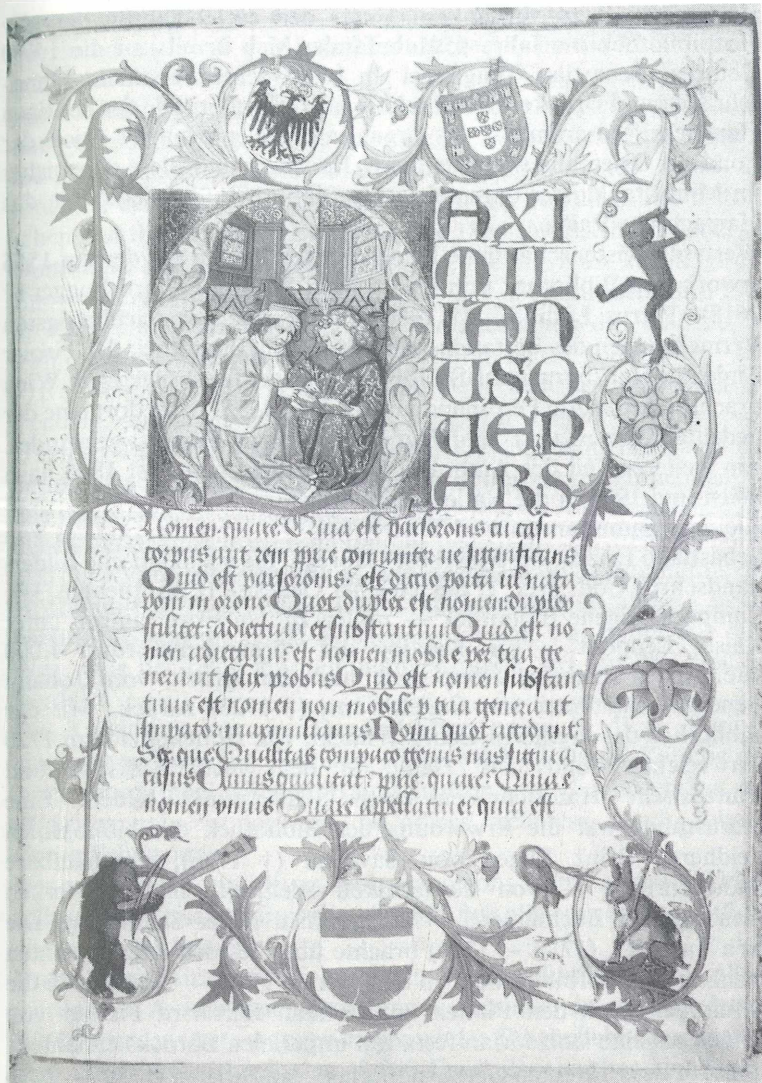 AXI
MIL
IAN
USQ
UEP
ARS
Nomen quare Quia est parsoronis cū casu
corpus aut rem ꝓprie comūniter ue significans
Quid est parsoronis: est dictio posita ul nata
poni in orone Quot duplex est nomen duplex
scilicet: adiectiuū et substantiuū Quid est no
men adiectiuū: est nomen mobile per tria ge
nera ut felix probus Quid est nomen substan
tiuū est nomen non mobile ꝑ tria genera ut
Impator maximilianus Nomī quot accidunt
Sex que Qualitas compaco genus nūs figura
casus Cuius qualitatꝭ ꝓprie quare: Quia e
nomen vnius Quare apellatiue: quia est